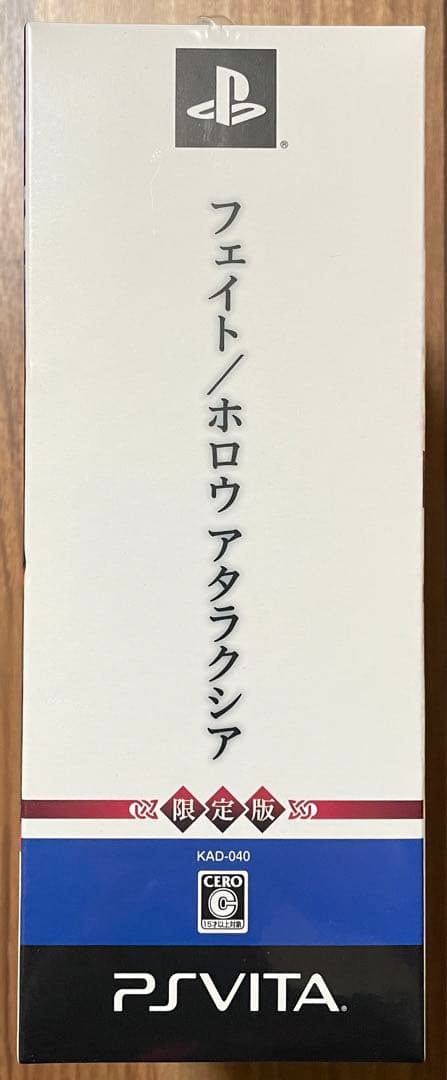 フェイト/ホロウ アタラクシア
限定版
KAD-040
CERO
C
15才以上対象
PSVITA